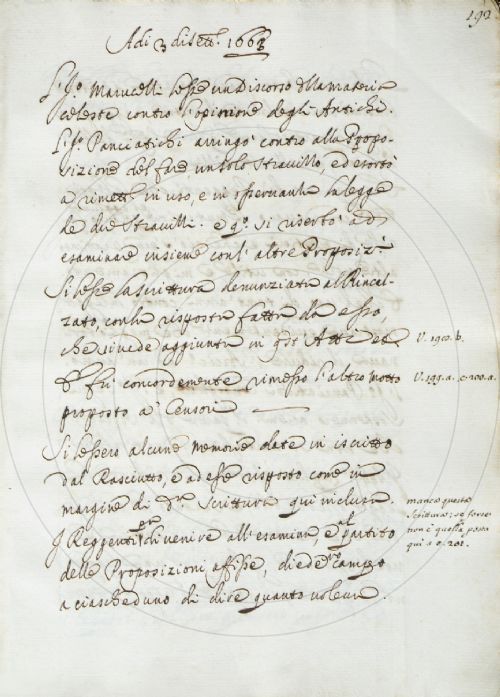 192
Adi 3 di Sett. 1663
L'Jo. Marucelli lesse un Discorso della materia
celeste contro l'opinione degli Antichi.
L'Jo. Panciatichi arringò contro alla Propo-
sizione del fare un solo Stravillo, ed esortò
a rimett. in uso, e in osservanza la legge
de due Stravilli. e qo. si riserbò ad
esaminare insieme con l'altre Proposiz.
Si lesse la scrittura denunziata al Rincal-
zato, con la risposta fatta da esso,
che si vede aggiunta in qsti Atti et
fu concordemente rimesso l'altro motto
proposto a' Censori
V. 190. b.
V. 199. a. e 200. a.
Si lessero alcune memorie date in iscritto
dal Rasciutto, e ad esse risposto come in
margine di da. Scrittura qui inclusa.
J Reggenti per divenire all'esamina, e al partito
delle Proposizioni affisse, diedero campo
a ciascheduno di dire quanto voleva.
manca questa
scrittura: se forse
non è quella posta
qui a c. 201.